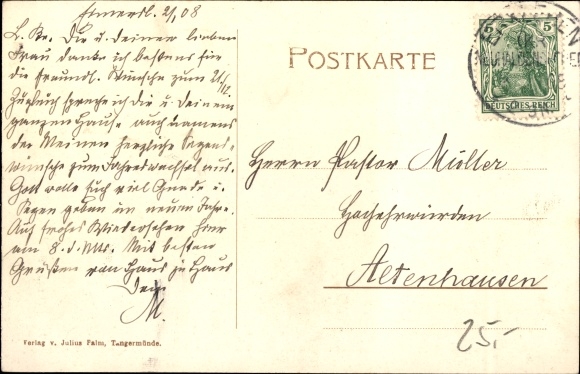 Emerdl. 2/1 08
L. Br. Dir u. deiner lieben
Frau danke ich bestens für
die freundl. Wünsche zum 21/12.
Zugleich spreche ich dir u. deinem
ganzen Hause auch namens
der Meinen herzliche Segens-
wünsche zum Jahreswechsel aus.
Gott wolle Euch viel Gnade u.
Segen geben im neuen Jahre.
Auf frohes Wiedersehen hier
am 8. d. Mts. Mit besten
Grüßen von Haus zu Haus
Dein
M.
Verlag v. Julius Palm, Tangermünde.
POSTKARTE
5 5
DEUTSCHES REICH
Herrn Pastor Müller
Hochehrwürden
Altenhausen
25.-